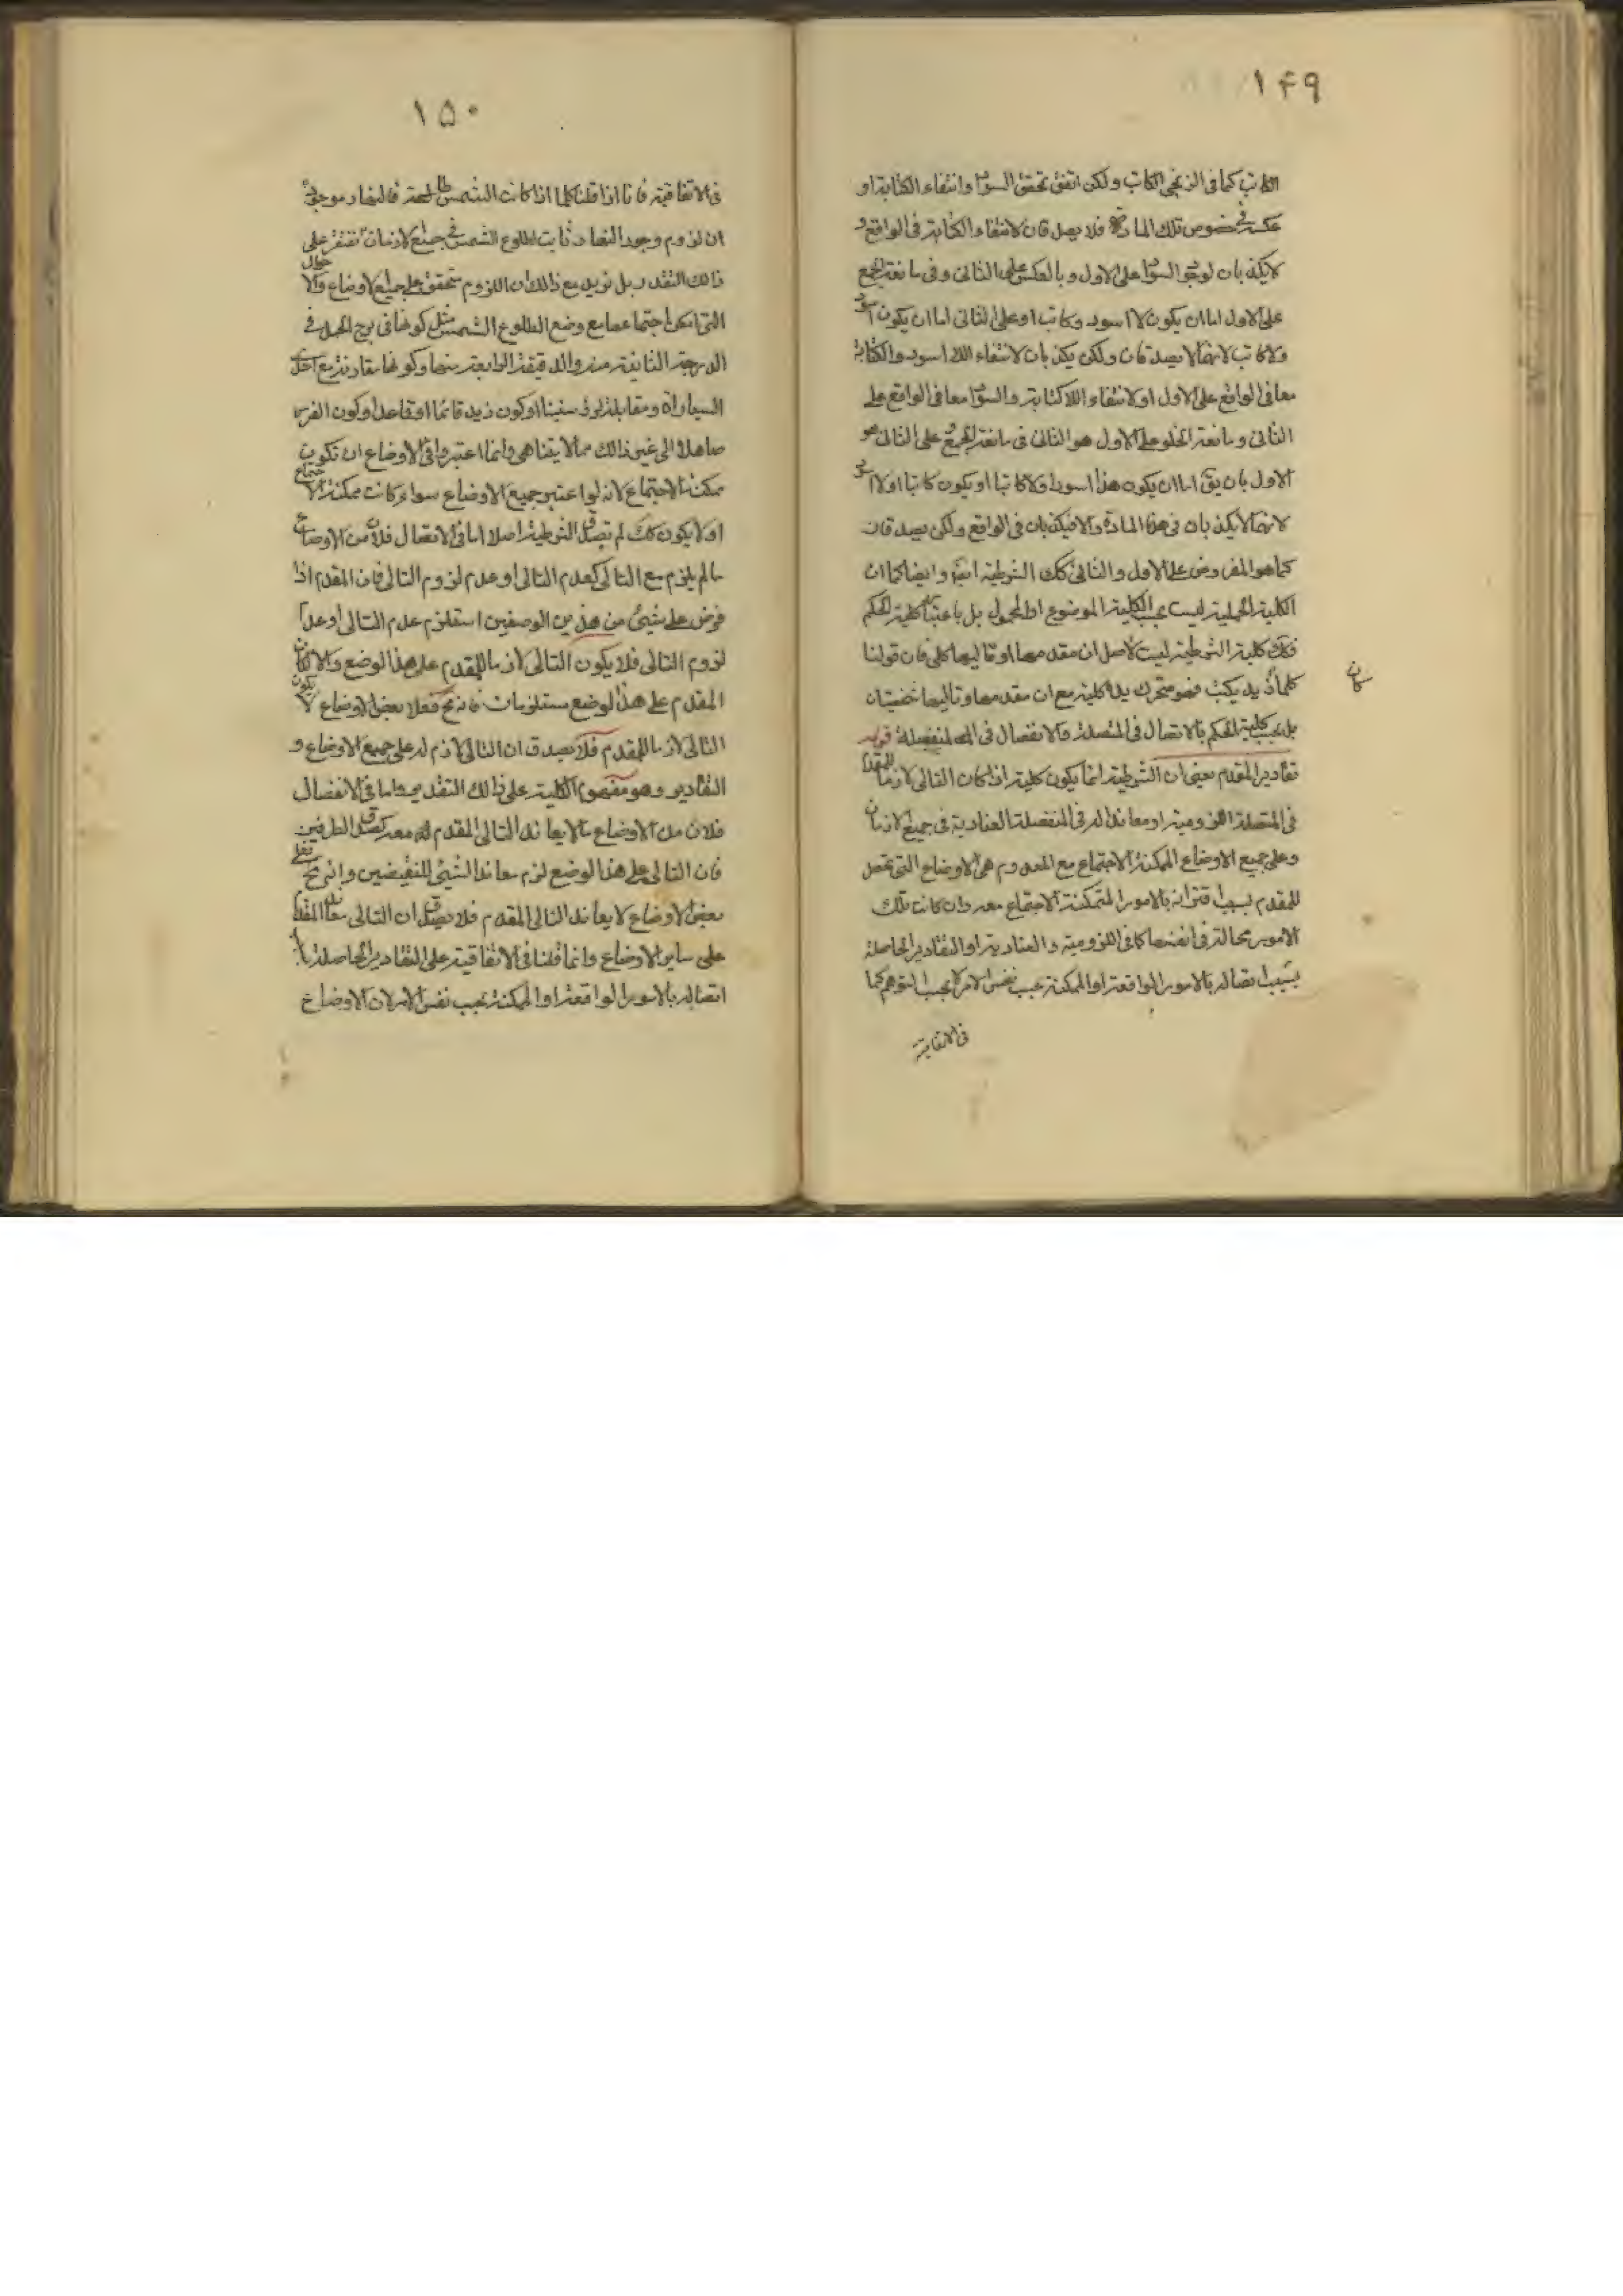 ١۴٩
الكاتب كما فى الزنجى الكاتب ولكن اتفق تحقق السواد وانتفاء الكتابة او
عكسه فى خصوص تلك المادة فلا يصدقان لانتفاء الكتابة فى الواقع و
لا يكذبان لوجود السواد على الاول وبالعكس على الثانى وفى مانعة الجمع
على الاول اما ان يكون لا اسود وكاتبا وعلى الثانى اما ان يكون اسود
ولا كاتب لانهما لا يصدقان ولكن يكذبان لانتفاء اللا اسود والكتابة
معا فى الواقع على الاول او لانتفاء اللاكتابة والسواد معا فى الواقع على
الثانى ومانعة الخلو على الاول هو الثانى فى مانعة الجمع وعلى الثانى هو
الاول بان يق اما ان يكون هذا اسود او لا كاتبا او يكون كاتبا او لا اسود
لانهما لا يكذبان فى هذه المادة والا فيكذبان فى الواقع ولكن يصدقان
كما هو المفروض على الاول والثانى كك الشرطية ايضا وايضا كما ان
الكلية الحملية ليست بحسب الكلية الموضوع او المحمول بل باعتبار كلية الحكم
فكك كلية الشرطية ليست لاصل ان مقدمها او تاليها كلى فان قولنا
كلما زيد يكتب فهو متحرك يده كلية مع ان مقدمها وتاليها شخصيتان
كان
بل بحسب كلية الحكم بالاتصال فى المتصلة والانفصال فى المنفصلة قوله
تقادير المقدم يعنى ان الشرطية انما يكون كلية اذا كان التالى لازما للمقدم
فى المتصلة اللزومية او معاندا له فى المنفصلة العنادية فى جميع الازمان
وعلى جميع الاوضاع الممكنة الاجتماع مع المقدم وهى الاوضاع التى تحصل
للمقدم بسبب اقترانه بالامور الممكنة الاجتماع معه وان كانت تلك
الامور محالة فى انفسها كما فى اللزومية والعنادية او التقادير الحاصلة
بسبب اتصاله بالامور الواقعة او الممكنة بحسب نفس الامر لا بحسب التوهم كما
فى الاتفاقية
١۵٠
فى الاتفاقية فانا اذا قلنا كلما اذا كانت الشمس طالعة فالنهار موجود
ان لزوم وجود النهار ثابت لطلوع الشمس فى جميع الازمان نقتصر على
ذالك القدر بل نريد مع ذالك ان اللزوم متحقق على جميع الاوضاع والاحوال
التى امكن اجتماعها مع وضع الطلوع الشمس مثل كونها فى برج الحمل فى
الدرجة الثانية منه والدقيقة الرابعة منها وكونها مقارنة مع احدى
السيارات ومقابلة لوضعينا او كون زيد قائما او قاعدا وكون الفرس
صاهلا الى غير ذالك مما لا يتناهى وانما اعتبروا فى الاوضاع ان تكون
ممكنة الاجتماع لانه لو اعتبر جميع الاوضاع سواء كانت ممكنة الاجتماع
او لا يكون كك لم تصدق الشرطية اصلا اما فى الاتصال فلان من الاوضاع
ما لم يلزم مع التالى كعدم التالى او عدم لزوم التالى فان المقدم اذا
فرض على شيئ من هذين الوصفين استلزم عدم التالى او عدم
لزوم التالى فلا يكون التالى لازما للمقدم على هذا الوضع والا كان
المقدم على هذا الوضع مستلزما فانه ح فعلا بعض الاوضاع لا يكون
التالى لازما للمقدم فلا يصدق ان التالى لازم له على جميع الاوضاع و
التقادير وهو مفهوم الكلية على ذالك التقدير واما فى الانفصال
فلان من الاوضاع ما لا يعاند التالى المقدم له معه كصدق الطرفين
فان التالى على هذا الوضع لزم معاند الشيئ للنقيضين وانه مح فعلى
بعض الاوضاع لا يعاند التالى المقدم فلا يصدق ان التالى معاند المقدم
على ساير الاوضاع وانما قلنا فى الاتفاقية على التقادير الحاصلة با
اتصاله بالامور الواقعة او الممكنة بحسب نفس الامر لان الاوضاع